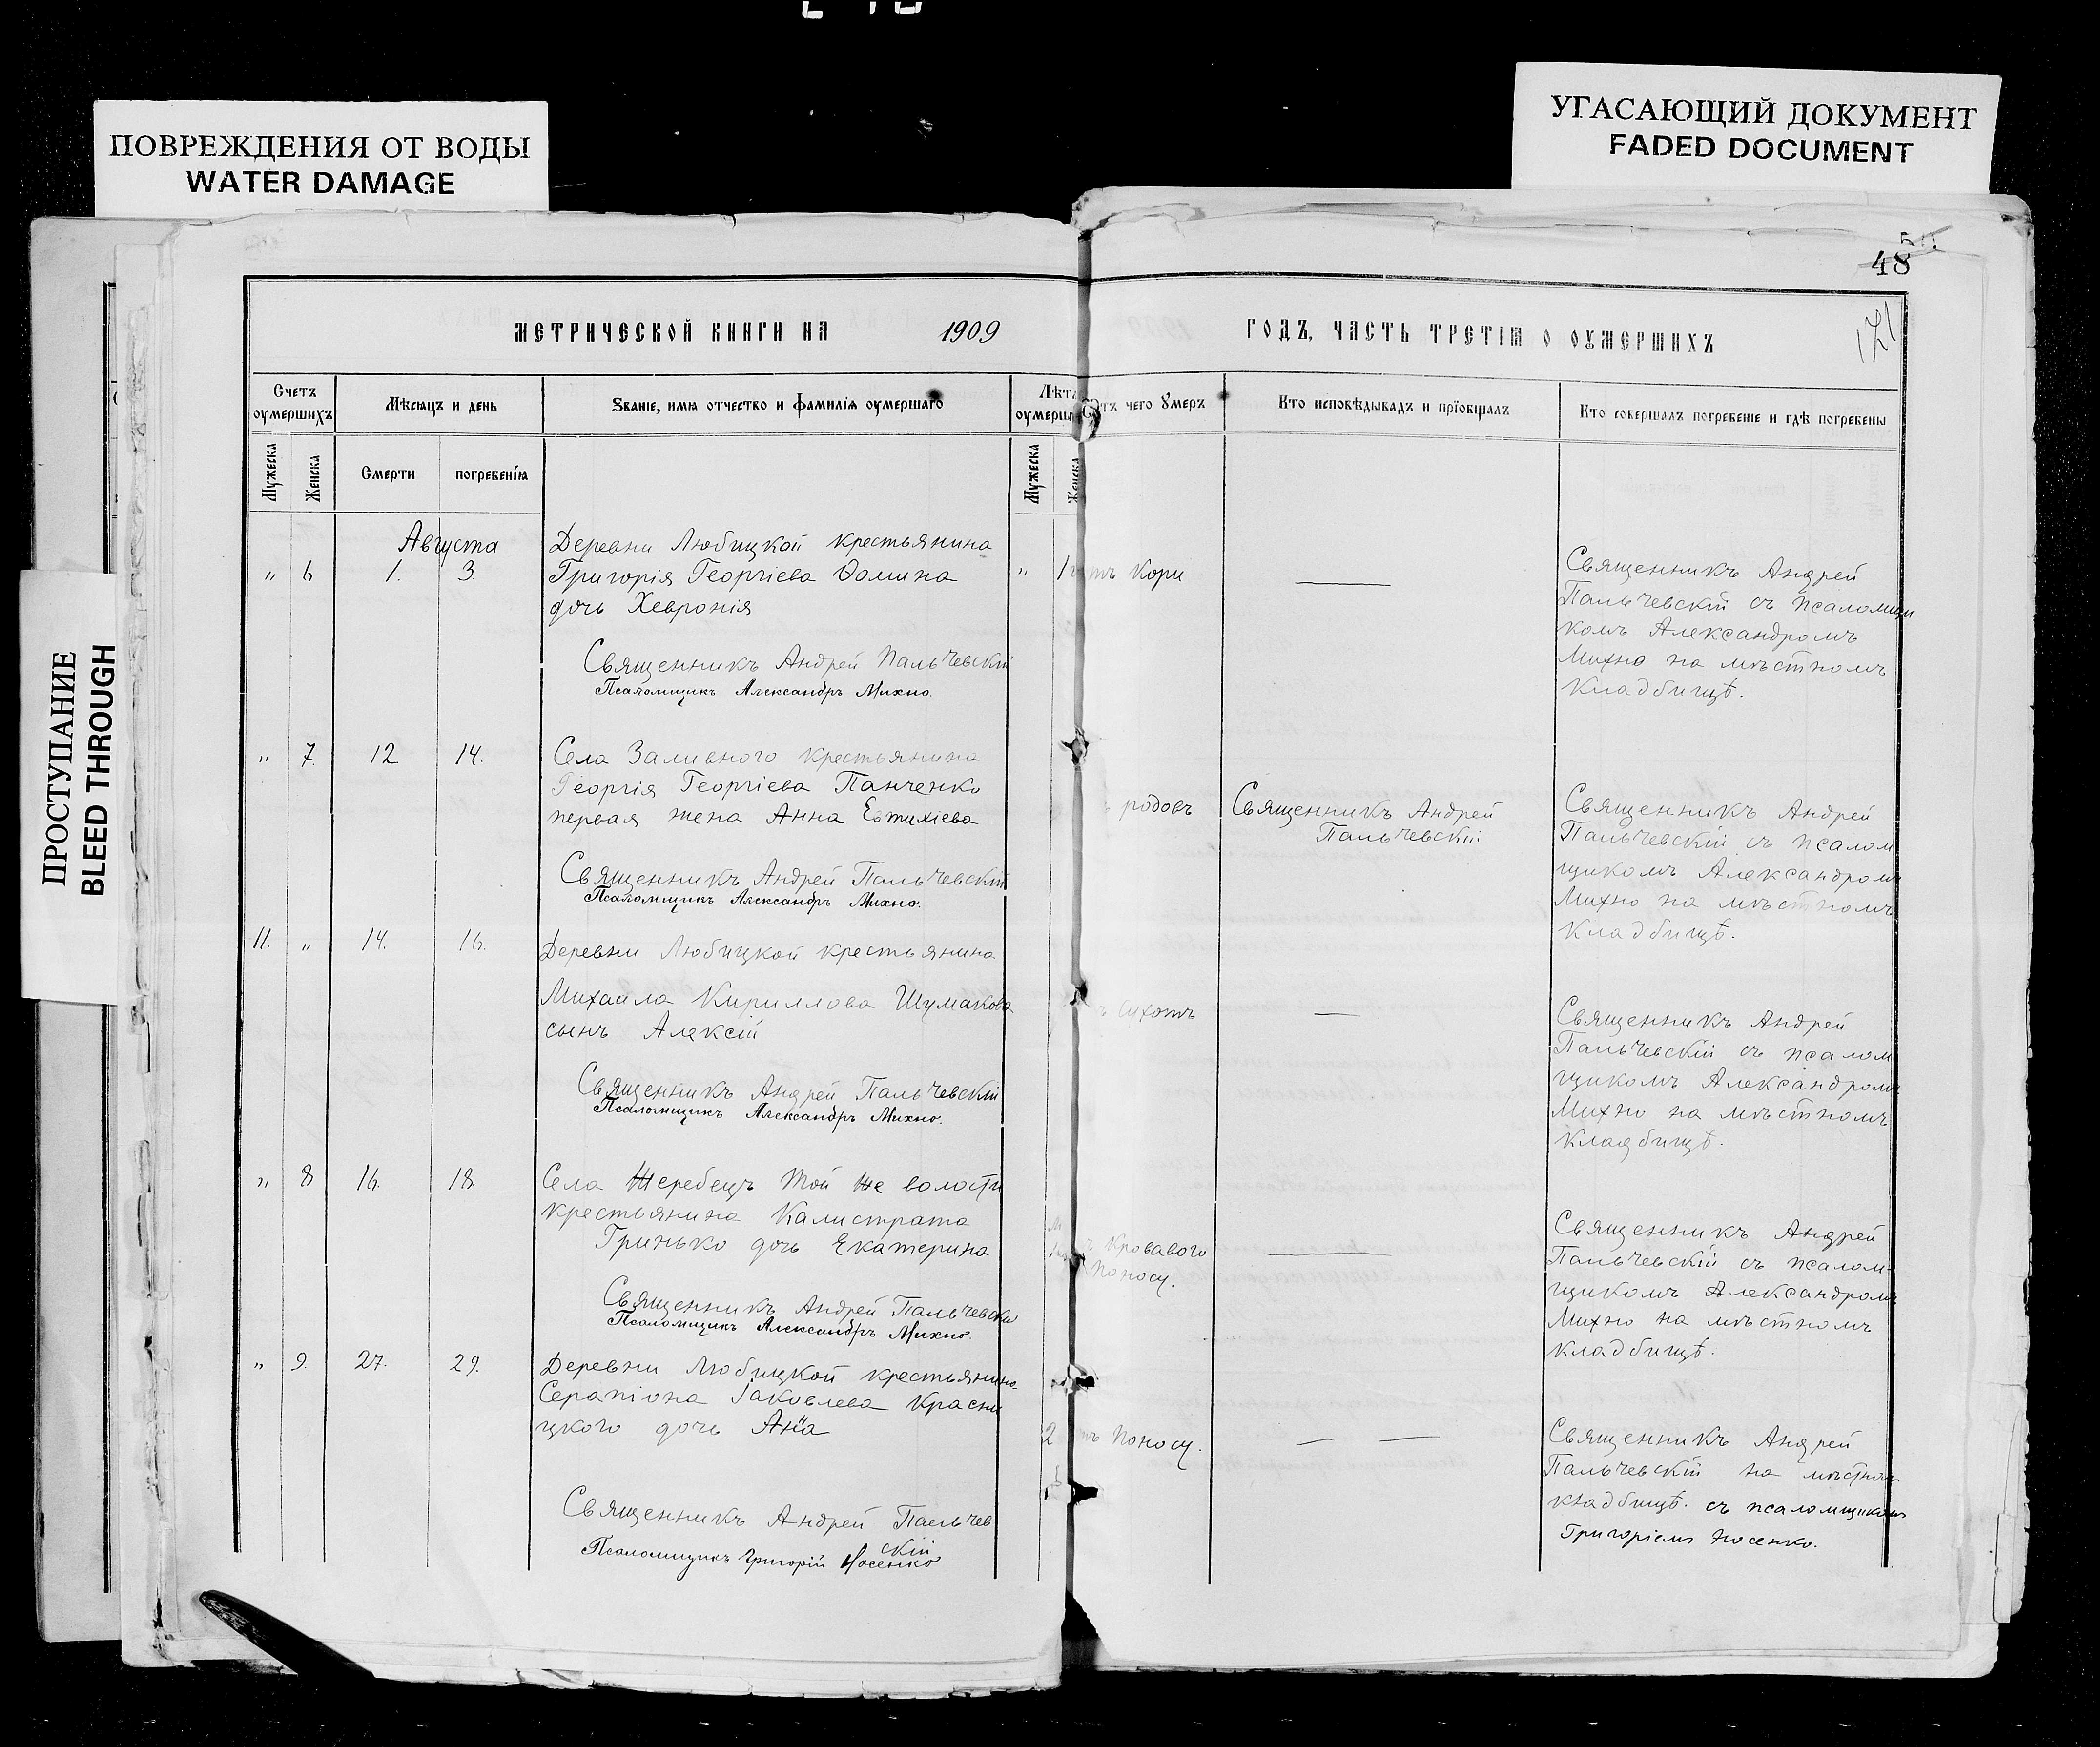 ПОВРЕЖДЕНИЯ ОТ ВОДЫ
WATER DAMAGE
УГАСАЮЩИЙ ДОКУМЕНТ
FADED DOCUMENT
ПРОСТУПАНИЕ
BLEED THROUGH
48
121
МЕТРИЧЕСКОЙ КНИГИ НА 1909 ГОДЪ, ЧАСТЬ ТРЕТІЯ О ОУМЕРШИХЪ
Счетъ оумершихъ
Мѣсяцъ и день
Званіе, имя отчество и фамилія оумершаго
Лѣта оумерша
Отъ чего Умеръ
Кто исповѣдывалъ и пріобщалъ
Кто совершалъ погребеніе и гдѣ погребены
Мужеска
Женска
Смерти
погребенія
Мужеска
Женска
Августа
" 6 1. 3.
Деревни Любицкой крестьянина
Григорія Георгіева Ѳомина
дочь Хевронія
" 1
отъ кори
Священникъ Андрей
Пальчевскій съ псаломщи
комъ Александромъ
Михно на мѣстномъ
кладбищѣ.
Священникъ Андрей Пальчевскій
Псаломщикъ Александръ Михно.
" 7. 12 14.
Села Заливного крестьянина
Георгія Георгіева Панченко
первая жена Анна Евтихіева
родовъ
Священникъ Андрей
Пальчевскій
Священникъ Андрей
Пальчевскій съ псалом
щикомъ Александромъ
Михно на мѣстномъ
кладбищѣ.
Священникъ Андрей Пальчевскій
Псаломщикъ Александръ Михно.
11. " 14. 16.
Деревни Любицкой крестьянина
Михаила Кириллова Шумакова
сынъ Алексій
сухотъ
Священникъ Андрей
Пальчевскій съ псалом
щикомъ Александромъ
Михно на мѣстномъ
кладбищѣ.
Священникъ Андрей Пальчевскій
Псаломщикъ Александръ Михно.
" 8 16. 18.
Села Жеребецъ той же волости
крестьянина Калистрата
Гринько дочь Екатерина
кроваваго
поносу.
Священникъ Андрей
Пальчевскій съ псалом-
щикомъ Александромъ
Михно на мѣстномъ
кладбищѣ.
Священникъ Андрей Пальчевскій
Псаломщикъ Александръ Михно.
" 9. 27. 29.
Деревни Любицкой крестьянина
Серапіона Іаковлева Красни
цкого дочь Анна
2
поносу.
Священникъ Андрей
Пальчевскій на мѣстном
кладбищѣ. съ псаломщикомъ
Григоріемъ Носенко.
Священникъ Андрей Пальчев
скій
Псаломщикъ Григорій Носенко